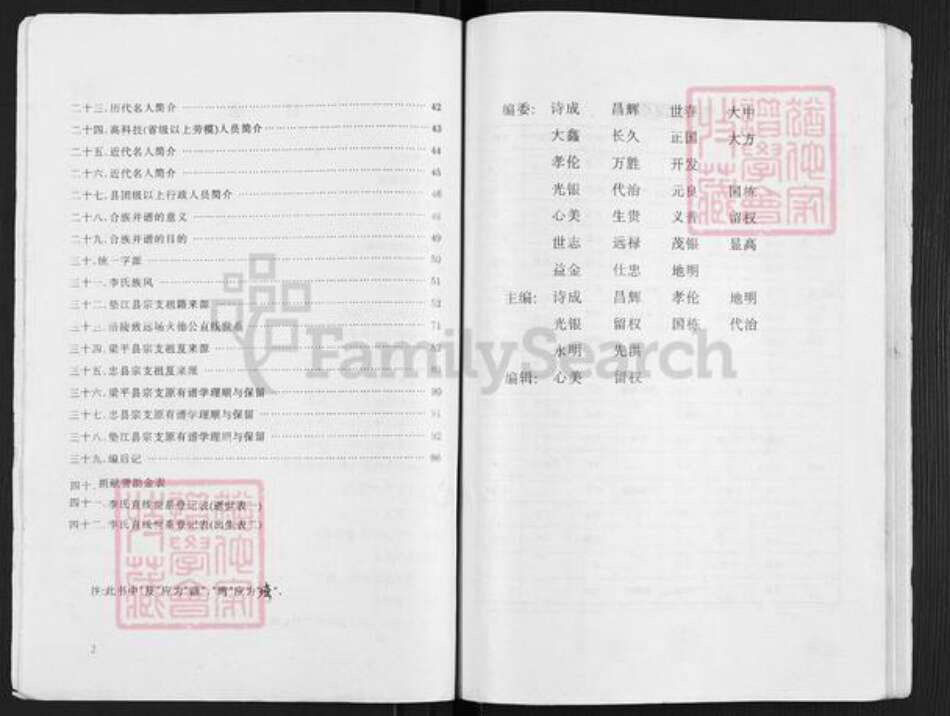 二十三.历代名人简介 42
二十四.高科技(省级以上劳模)人员简介 43
二十五.近代名人简介 44
二十六.近代名人简介 45
二十七.县团级以上行政人员简介 46
二十八.合族并谱的意义
二十九.合族并谱的目的 49
三十.统一字派 50
三十一.李氏族风 51
三十二.垫江县宗支祖籍来源
三十三.涪陵致远场火德公直线世系 71
三十四.梁平县宗支祖及来源
三十五.忠县宗支祖及来源
三十六.梁平县宗支原有谱学理顺与保留 90
三十七.忠县宗支原有谱学理顺与保留
三十八.垫江县宗支原有谱学理顺与保留 92
三十九.编后记 96
四十.捐献赞助金表
四十一.李氏直线世系登记表(逝世表一)
四十二.李氏直线世系登记表(出生表二)
注:此书中"及"应为
2
编委: 诗成 昌辉 世春 大中
大鑫 长久 正国 大方
孝伦 万胜 开发
光银 代治 元良 国栋
心美 生贵 义 留权
世志 远禄 茂银 显高
益金 仕忠 地明
主编: 诗成 昌辉 孝伦 地明
光银 留权 国栋 代治
永明 先洪
编辑: 心美 留权
FamilySearch